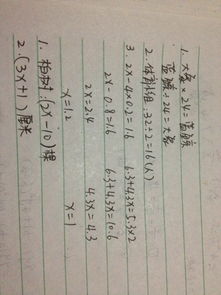 1. 大象×24=蓝鲸
蓝鲸÷24=大象
2. 体育小组:32÷2=16(人)
3. 2x-4×0.2=1.6 6.3+4.3x=5.3×2
2x-0.8=1.6 6.3+4.3x=10.6
2x=2.4 4.3x=4.3
x=1.2 x=1
1. 柏树:(2x-10)棵
2. (3x+1)厘米